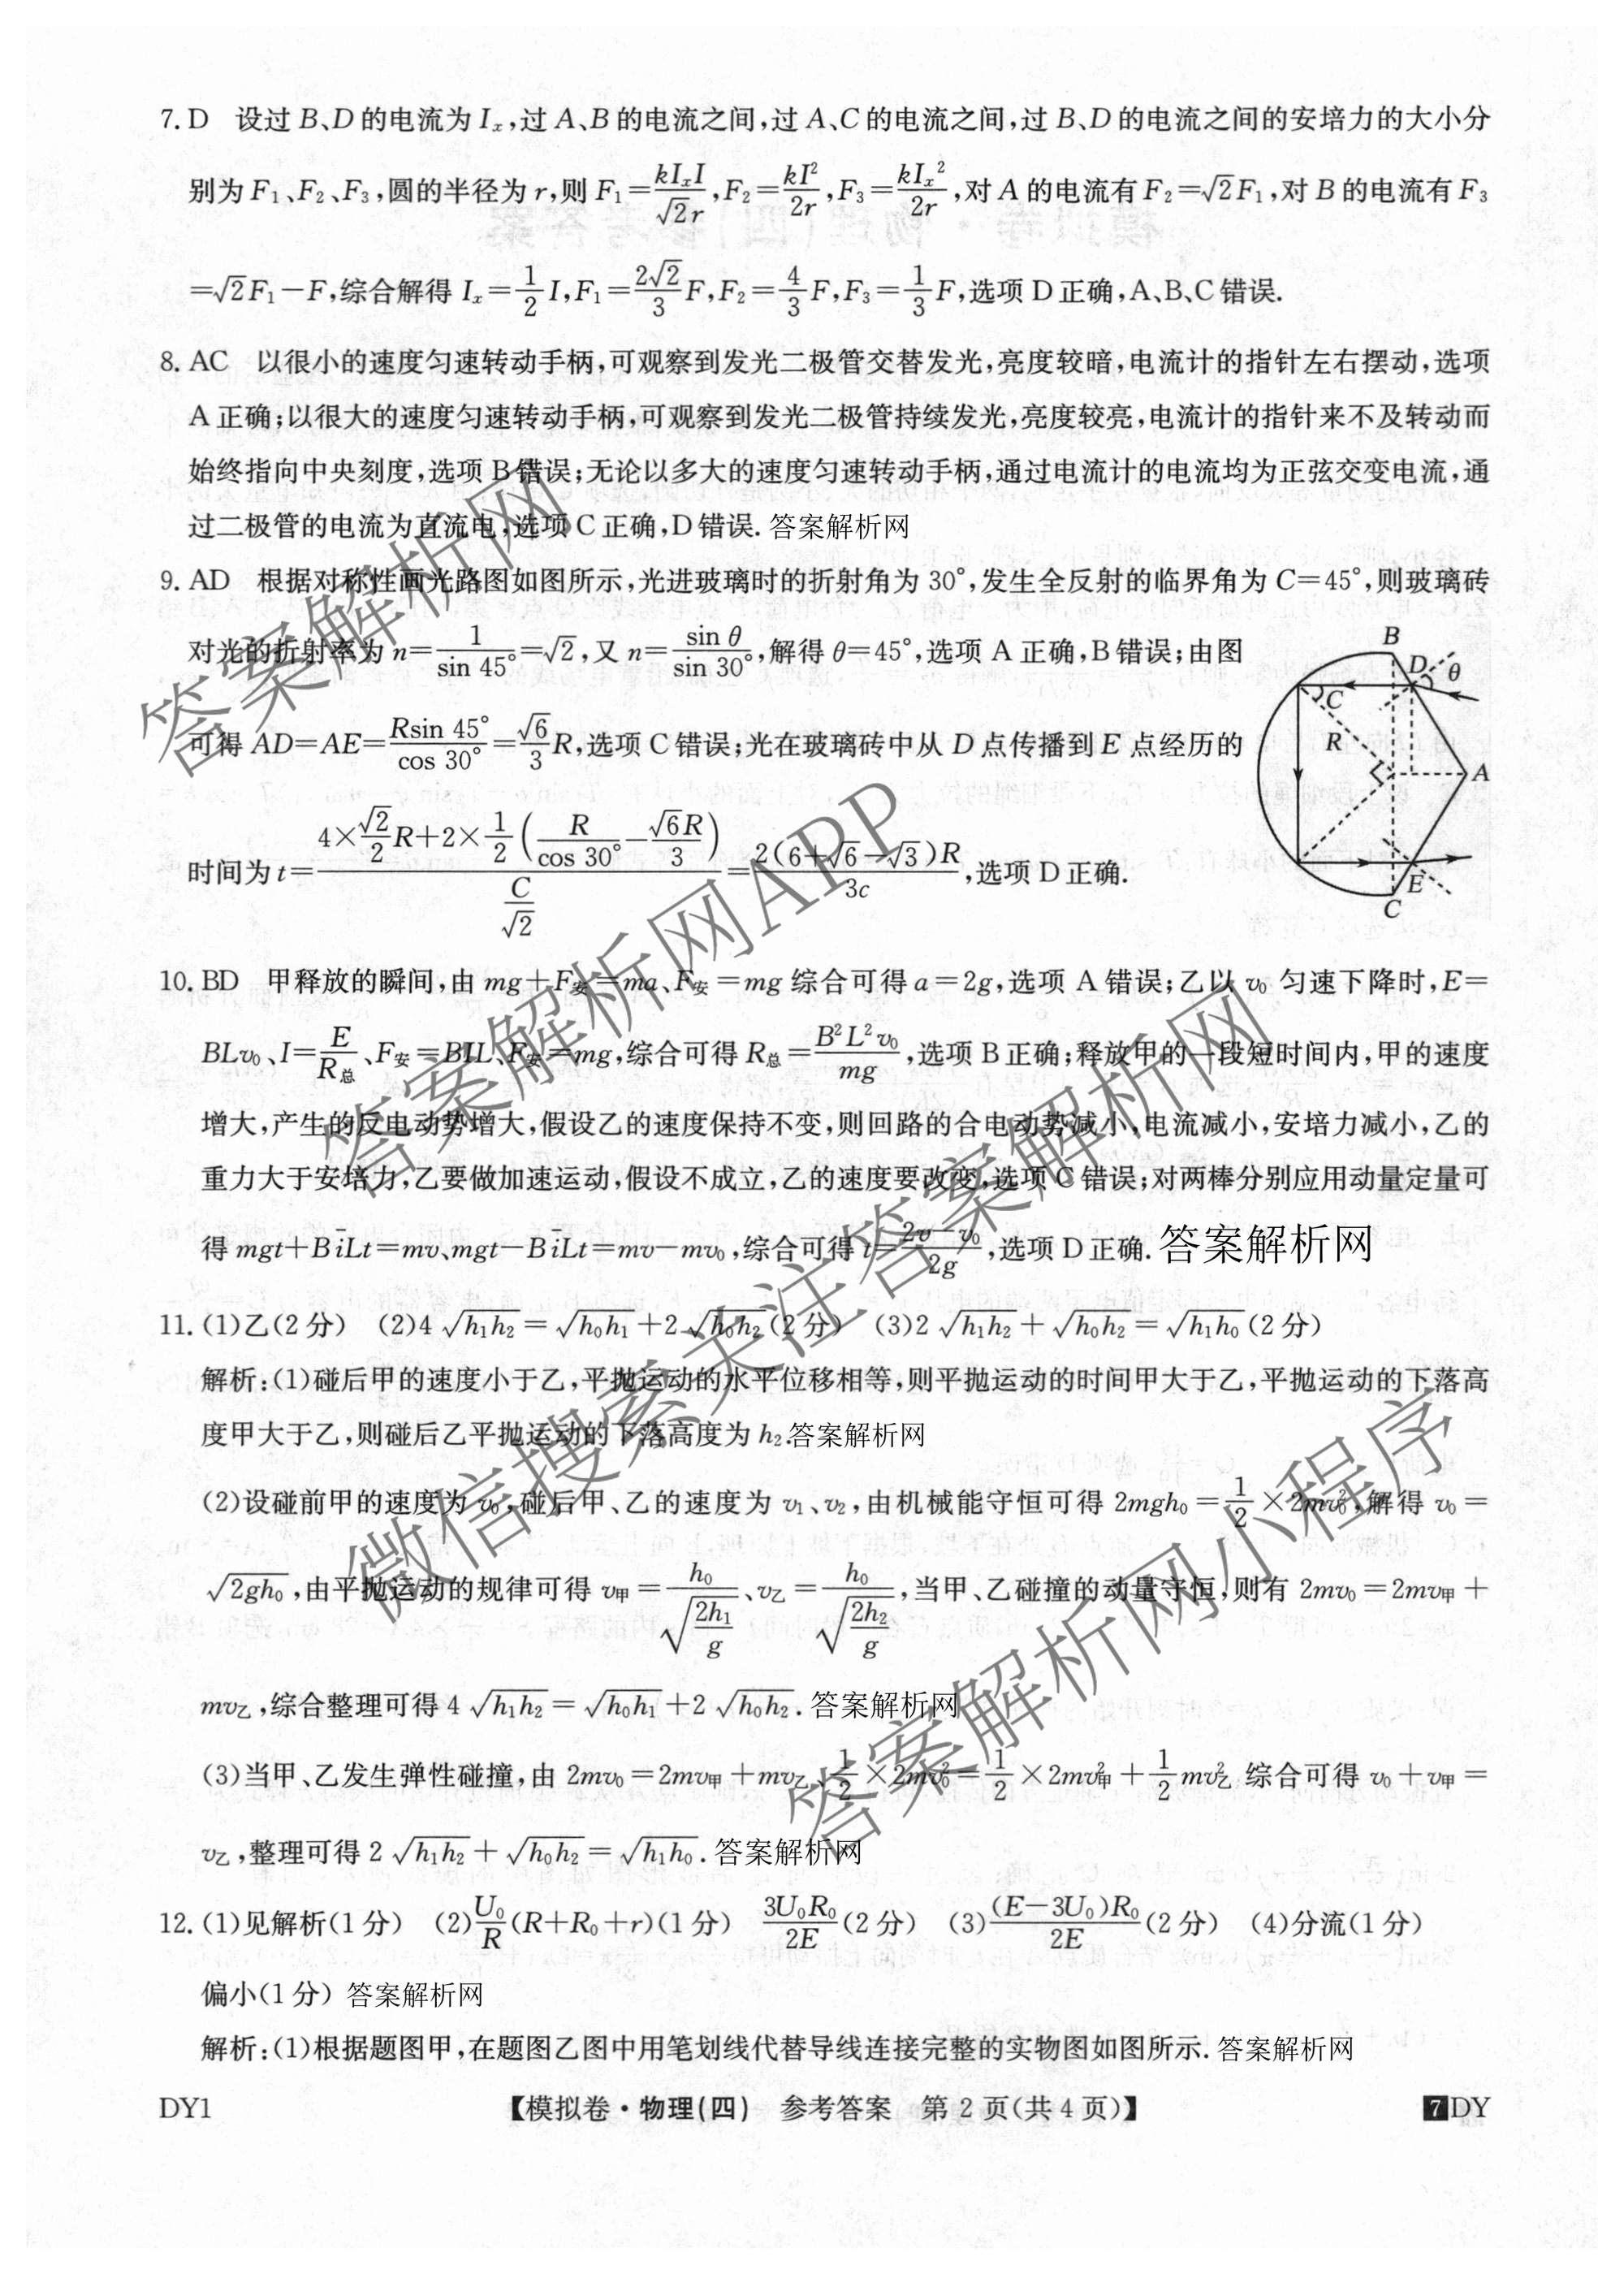 7. D 设过 B、D 的电流为 Iₓ,过 A、B 的电流之间,过 A、C 的电流之间,过 B、D 的电流之间的安培力的大小分
别为 F₁、F₂、F₃,圆的半径为 r,则 F₁=kIₓI/(√2r),F₂=kI²/2r,F₃=kIₓ²/2r,对 A 的电流有 F₂=√2F₁,对 B 的电流有 F₃
=√2F₁−F,综合解得 Iₓ=1/2 I,F₁=2√2/3 F,F₂=4/3 F,F₃=1/3 F,选项 D 正确,A、B、C 错误.
8. AC 以很小的速度匀速转动手柄,可观察到发光二极管交替发光,亮度较暗,电流计的指针左右摆动,选项
A 正确;以很大的速度匀速转动手柄,可观察到发光二极管持续发光,亮度较亮,电流计的指针来不及转动而
始终指向中央刻度,选项 B 错误;无论以多大的速度匀速转动手柄,通过电流计的电流均为正弦交变电流,通
过二极管的电流为直流电,选项 C 正确,D 错误. 答案解析网
9. AD 根据对称性画光路图如图所示,光进玻璃时的折射角为 30°,发生全反射的临界角为 C=45°,则玻璃砖
对光的折射率为 n=1/sin 45°=√2,又 n=sin θ/sin 30°,解得 θ=45°,选项 A 正确,B 错误;由图
可得 AD=AE=Rsin 45°/cos 30°=√6/3 R,选项 C 错误;光在玻璃砖中从 D 点传播到 E 点经历的
时间为 t=(4×√2/2 R+2×1/2(R/cos 30°−√6R/3))/(C/√2)=2(6+√6−√3)R/3c,选项 D 正确.
B
D
θ
C
R
A
E
C
10. BD 甲释放的瞬间,由 mg+F安=ma、F安=mg 综合可得 a=2g,选项 A 错误;乙以 v₀ 匀速下降时,E=
BLv₀、I=E/R总、F安=BIL、F安=mg,综合可得 R总=B²L²v₀/mg,选项 B 正确;释放甲的一段短时间内,甲的速度
增大,产生的反电动势增大,假设乙的速度保持不变,则回路的合电动势减小,电流减小,安培力减小,乙的
重力大于安培力,乙要做加速运动,假设不成立,乙的速度要改变,选项 C 错误;对两棒分别应用动量定量可
得 mgt+BīLt=mv、mgt−BīLt=mv−mv₀,综合可得 t=(2v−v₀)/2g,选项 D 正确. 答案解析网
11. (1)乙(2 分) (2)4√(h₁h₂)=√(h₀h₁)+2√(h₀h₂)(2 分) (3)2√(h₁h₂)+√(h₀h₂)=√(h₁h₀)(2 分)
解析:(1)碰后甲的速度小于乙,平抛运动的水平位移相等,则平抛运动的时间甲大于乙,平抛运动的下落高
度甲大于乙,则碰后乙平抛运动的下落高度为 h₂.答案解析网
(2)设碰前甲的速度为 v₀,碰后甲、乙的速度为 v₁、v₂,由机械能守恒可得 2mgh₀=1/2×2mv₀²,解得 v₀=
√(2gh₀),由平抛运动的规律可得 v甲=h₀/√(2h₁/g)、v乙=h₀/√(2h₂/g),当甲、乙碰撞的动量守恒,则有 2mv₀=2mv甲+
mv乙,综合整理可得 4√(h₁h₂)=√(h₀h₁)+2√(h₀h₂). 答案解析网
(3)当甲、乙发生弹性碰撞,由 2mv₀=2mv甲+mv乙、1/2×2mv₀²=1/2×2mv甲²+1/2 mv乙² 综合可得 v₀+v甲=
v乙,整理可得 2√(h₁h₂)+√(h₀h₂)=√(h₁h₀). 答案解析网
12. (1)见解析(1 分) (2)U₀/R(R+R₀+r)(1 分) 3U₀R₀/2E(2 分) (3)(E−3U₀)R₀/2E(2 分) (4)分流(1 分)
偏小(1 分) 答案解析网
解析:(1)根据题图甲,在题图乙图中用笔划线代替导线连接完整的实物图如图所示. 答案解析网
DY1 【模拟卷·物理(四) 参考答案 第 2 页(共 4 页)】 7 DY
答案解析网
答案解析网APP
微信搜索关注答案解析网
答案解析网小程序